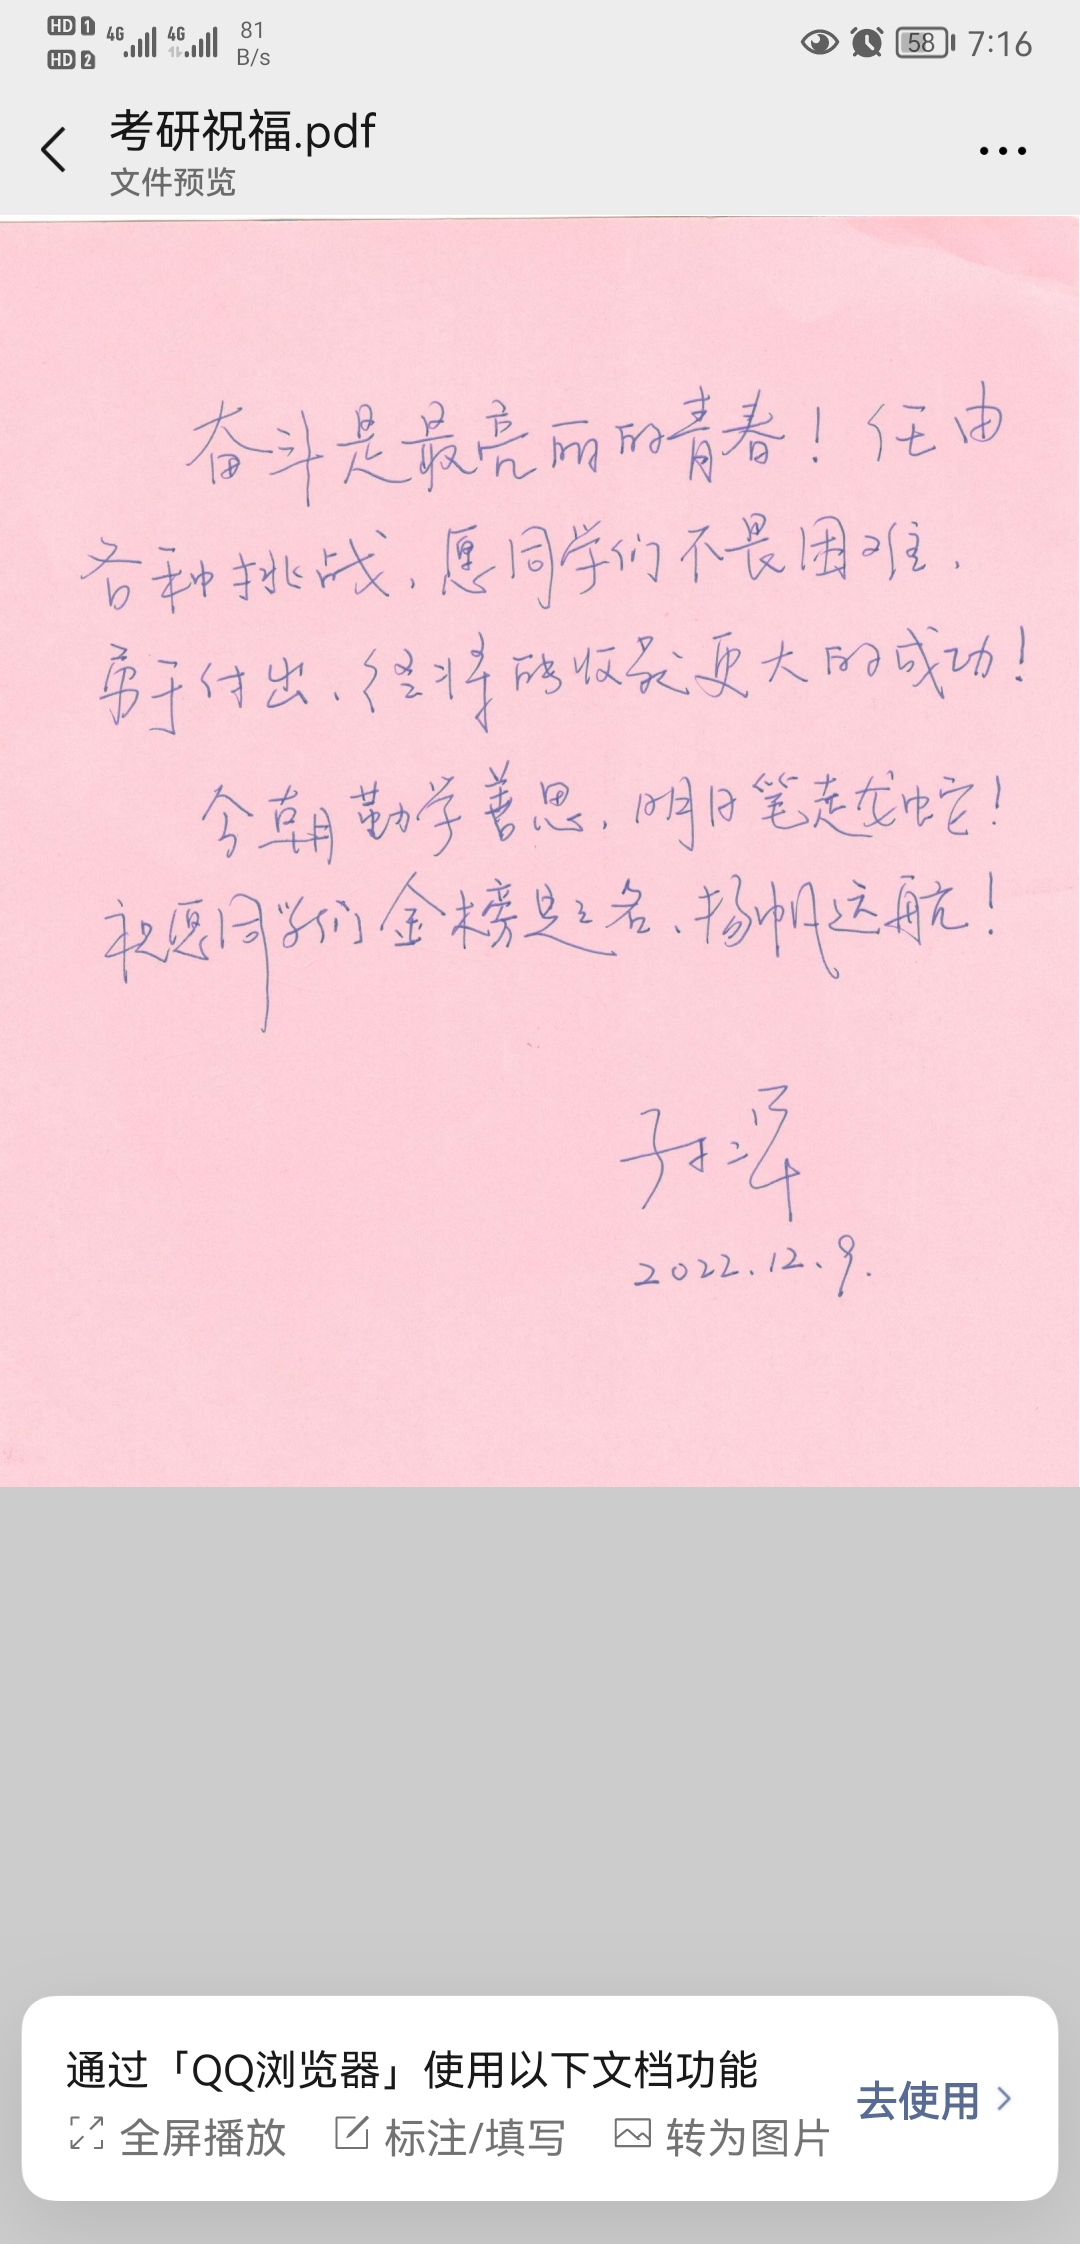 HD 1 4G 4G 81
HD 2 B/s 58 7:16
考研祝福.pdf
文件预览
奋斗是最亮丽的青春！任由
各种挑战，愿同学们不畏困难，
勇于付出，终将收获更大的成功！
今朝勤学善思，明日笔走龙蛇！
祝愿同学们金榜题名、扬帆远航！
2022.12.9.
通过「QQ浏览器」使用以下文档功能
去使用
全屏播放 标注/填写 转为图片